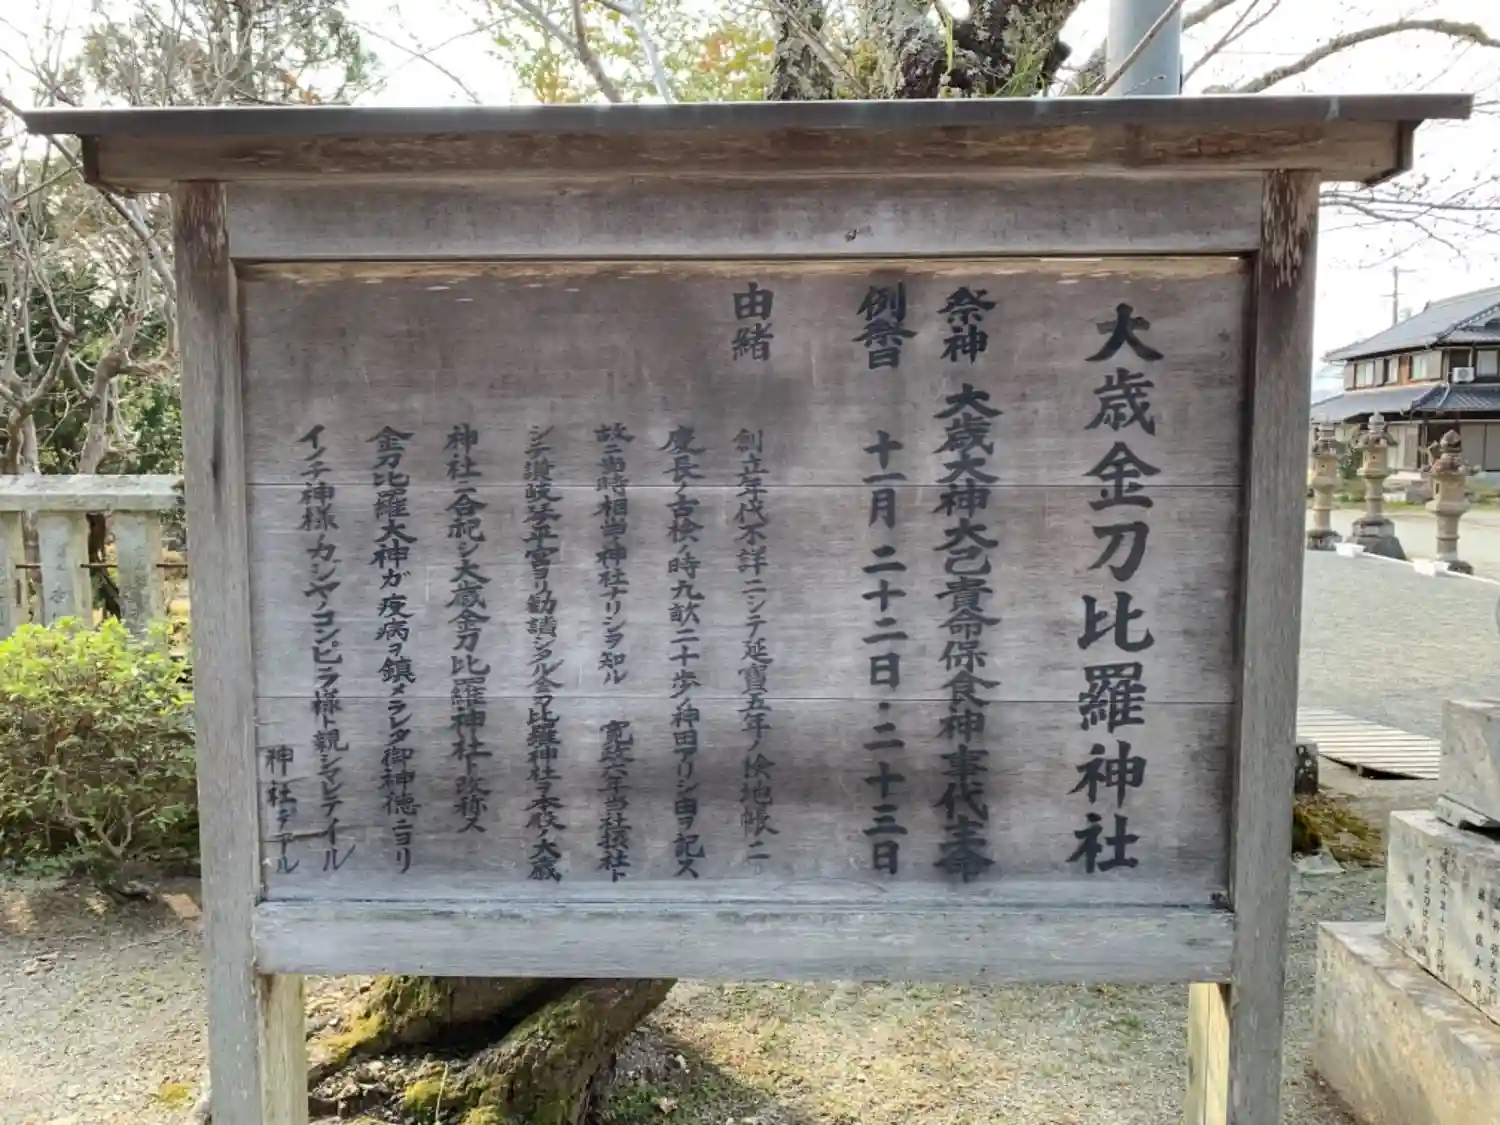 大歳金刀比羅神社
祭神 大歳大神大己貴命保食神事代主命
例祭日 十一月二十二日・二十三日
由緒
創立年代不詳ニシテ延寶五年ノ検地帳ニ
慶長ノ古検ノ時九畝二十歩ノ神田アリシ由ヲ記ス
故ニ当時相当ノ神社ナリシヲ知ル 寛政六年当社接社ト
シテ讃岐延平宮ヨリ勧請シタル金刀比羅神社ヲ本殿ノ大歳
神社ニ合祀シ大歳金刀比羅神社ト改称ス
金刀比羅大神ガ疫病ヲ鎮メラレタ御神徳ニヨリ
イノチ神様ノカジヤノコンピラ様ト親シマレテイル
神社デアル